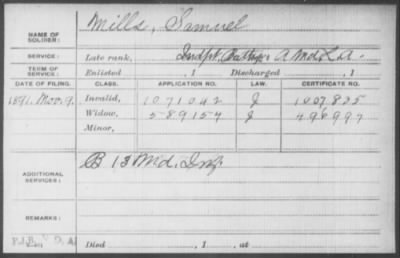 NAME OF SOLDIER: Mills, Samuel
SERVICE: Late rank, Indpt. Batty A Md. L A.
TERM OF SERVICE: Enlisted , 1 Discharged , 1
DATE OF FILING. CLASS. APPLICATION NO. LAW. CERTIFICATE NO.
1891. Nov. 9. Invalid, 1071042 J 1007,825
Widow, 589154 J
Minor,
ADDITIONAL SERVICES: B 13 Md. Inf.
REMARKS:
Died , 1 , at